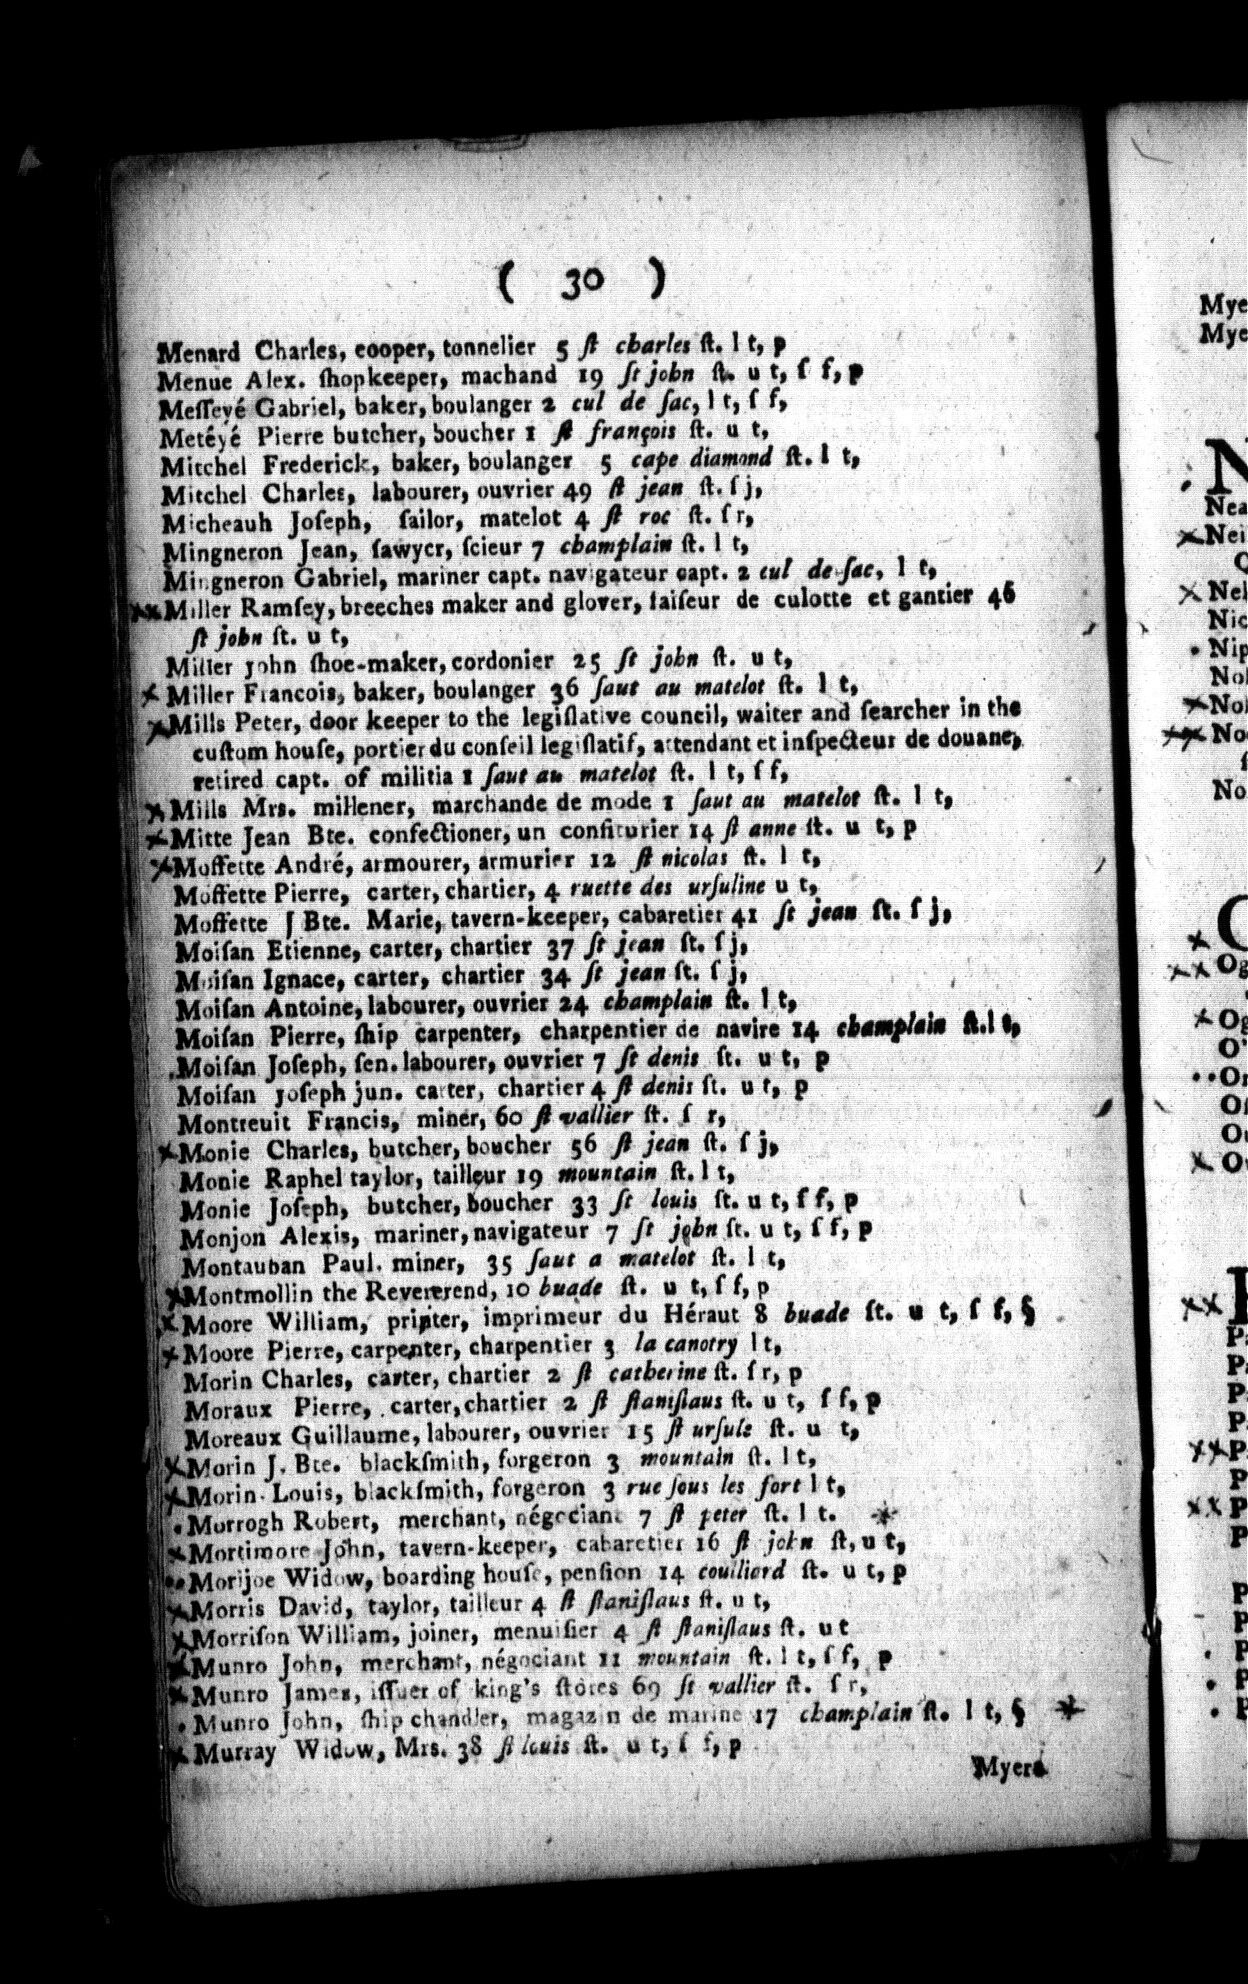 ( 30 )
Menard Charles, cooper, tonnelier 5 ſt charles ſt. l t, p
Menue Alex. ſhopkeeper, machand 19 ſt john ſt. u t, ſ f, p
Meſſeyé Gabriel, baker, boulanger 2 cul de ſac, l t, ſ f,
Metéyé Pierre butcher, boucher 1 ſt françois ſt. u t,
Mitchel Frederick, baker, boulanger 5 cape diamond ſt. l t,
Mitchel Charles, labourer, ouvrier 49 ſt jean ſt. ſ j,
Micheauh Joſeph, ſailor, matelot 4 ſt roc ſt. ſ r,
Mingneron Jean, ſawyer, ſcieur 7 champlain ſt. l t,
Mingneron Gabriel, mariner capt. navigateur capt. 2 cul de ſac, l t,
Miller Ramſey, breeches maker and glover, faiſeur de culotte et gantier 46
ſt john ſt. u t,
Miller John ſhoe-maker, cordonier 25 ſt john ſt. u t,
Miller Francois, baker, boulanger 36 ſaut au matelot ſt. l t,
Mills Peter, door keeper to the legiſlative council, waiter and ſearcher in the
cuſtom houſe, portier du conſeil legiſlatif, attendant et inſpecteur de douane,
retired capt. of militia 1 ſaut au matelot ſt. l t, ſ f,
Mills Mrs. millener, marchande de mode 1 ſaut au matelot ſt. l t,
Mitte Jean Bte. confectioner, un confiturier 14 ſt anne ſt. u t, p
Moffette André, armourer, armurier 12 ſt nicolas ſt. l t,
Moffette Pierre, carter, chartier, 4 ruette des urſuline u t,
Moffette J Bte. Marie, tavern-keeper, cabaretier 41 ſt jean ſt. ſ j,
Moiſan Etienne, carter, chartier 37 ſt jean ſt. ſ j,
Moiſan Ignace, carter, chartier 34 ſt jean ſt. ſ j,
Moiſan Antoine, labourer, ouvrier 24 champlain ſt. l t,
Moiſan Pierre, ſhip carpenter, charpentier de navire 14 champlain ſt. l t,
Moiſan Joſeph, ſen. labourer, ouvrier 7 ſt denis ſt. u t, p
Moiſan Joſeph jun. carter, chartier 4 ſt denis ſt. u t, p
Montreuit Francis, miner, 60 ſt vallier ſt. ſ r,
Monie Charles, butcher, boucher 56 ſt jean ſt. ſ j,
Monie Raphel taylor, tailleur 19 mountain ſt. l t,
Monie Joſeph, butcher, boucher 33 ſt louis ſt. u t, ſ f, p
Monjon Alexis, mariner, navigateur 7 ſt john ſt. u t, ſ f, p
Montauban Paul. miner, 35 ſaut a matelot ſt. l t,
Montmollin the Revererend, 10 buade ſt. u t, ſ f, p
Moore William, printer, imprimeur du Héraut 8 buade ſt. u t, ſ f, §
Moore Pierre, carpenter, charpentier 3 la canotry l t,
Morin Charles, carter, chartier 2 ſt catherine ſt. ſ r, p
Moraux Pierre, carter, chartier 2 ſt ſtaniſlaus ſt. u t, ſ f, p
Moreaux Guillaume, labourer, ouvrier 15 ſt urſule ſt. u t,
Morin J. Bte. blackſmith, forgeron 3 mountain ſt. l t,
Morin Louis, blackſmith, forgeron 3 rue ſous les fort l t,
Morrogh Robert, merchant, négociant 7 ſt peter ſt. l t. *
Mortimore John, tavern-keeper, cabaretier 16 ſt john ſt, u t,
Morijoe Widow, boarding houſe, penſion 14 couilliard ſt. u t, p
Morris David, taylor, tailleur 4 ſt ſtaniſlaus ſt. u t,
Morriſon William, joiner, menuiſier 4 ſt ſtaniſlaus ſt. u t
Munro John, merchant, négociant 11 mountain ſt. l t, ſ f, p
Munro James, iſſuer of king's ſtores 69 ſt vallier ſt. ſ r,
Munro John, ſhip chandler, magazin de marine 17 champlain ſt. l t, § *
Murray Widow, Mrs. 38 ſt louis ſt. u t, ſ f, p
Myers
Mye
Mye
N
Nea
Nei
Nel
Nic
Nip
No
O
Og
Og
O'